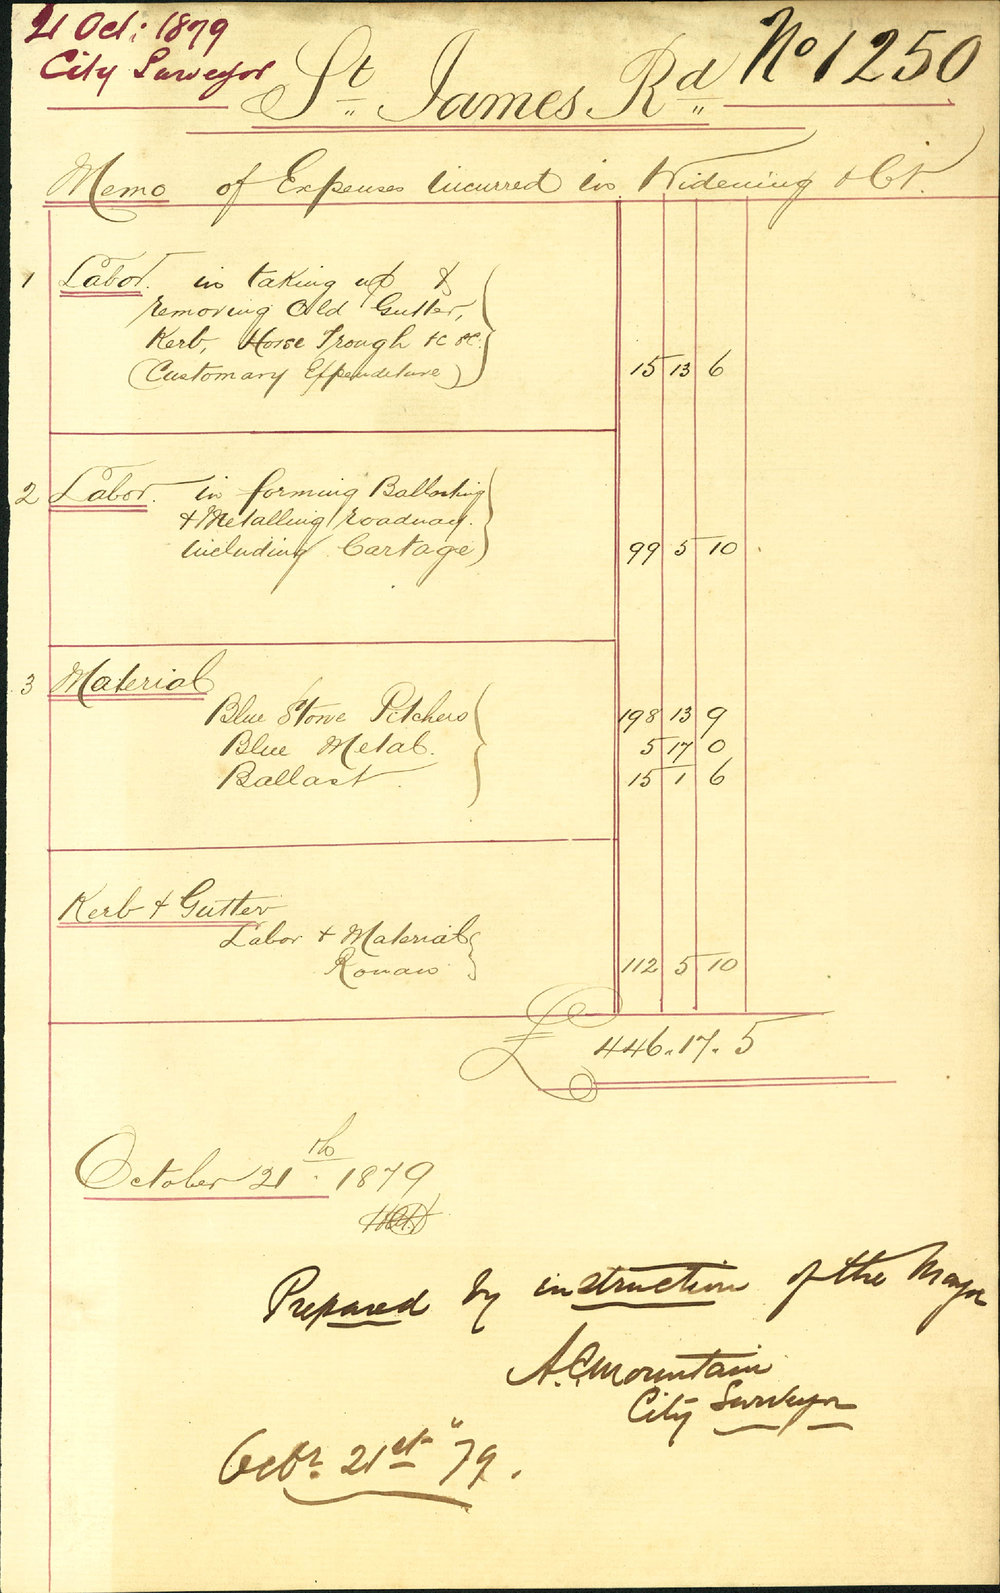 21 Oct: 1879
City Surveyor
No 1250
St James Rd
Memo of Expenses incurred in Widening &c
1 Labor. in taking up &
removing Old Gutter,
Kerb, Horse Trough &c &c.
(Customary Expenditure) 15 13 6
2 Labor. in forming Ballasting
& Metalling roadway.
including Cartage 99 5 10
3 Material
Blue Stone Pitchers 198 13 9
Blue Metal. 5 17 0
Ballast 15 1 6
Kerb + Gutter
Labor + Material
112 5 10
£ 446.17.5
October 21th 1879
Prepared by instruction of the Mayor
A.C. Mountain
City Surveyor
Octr. 21st "79.